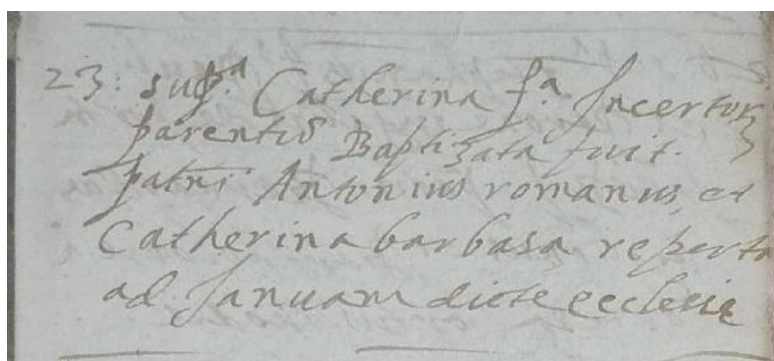 23: sup.ª Catherina f.ª Incertorꝫ
parentiũ Baptizata fuit.
patni Antonius romanus, et
Catherina barbasa reperta
ad Januam dicte ecclesie